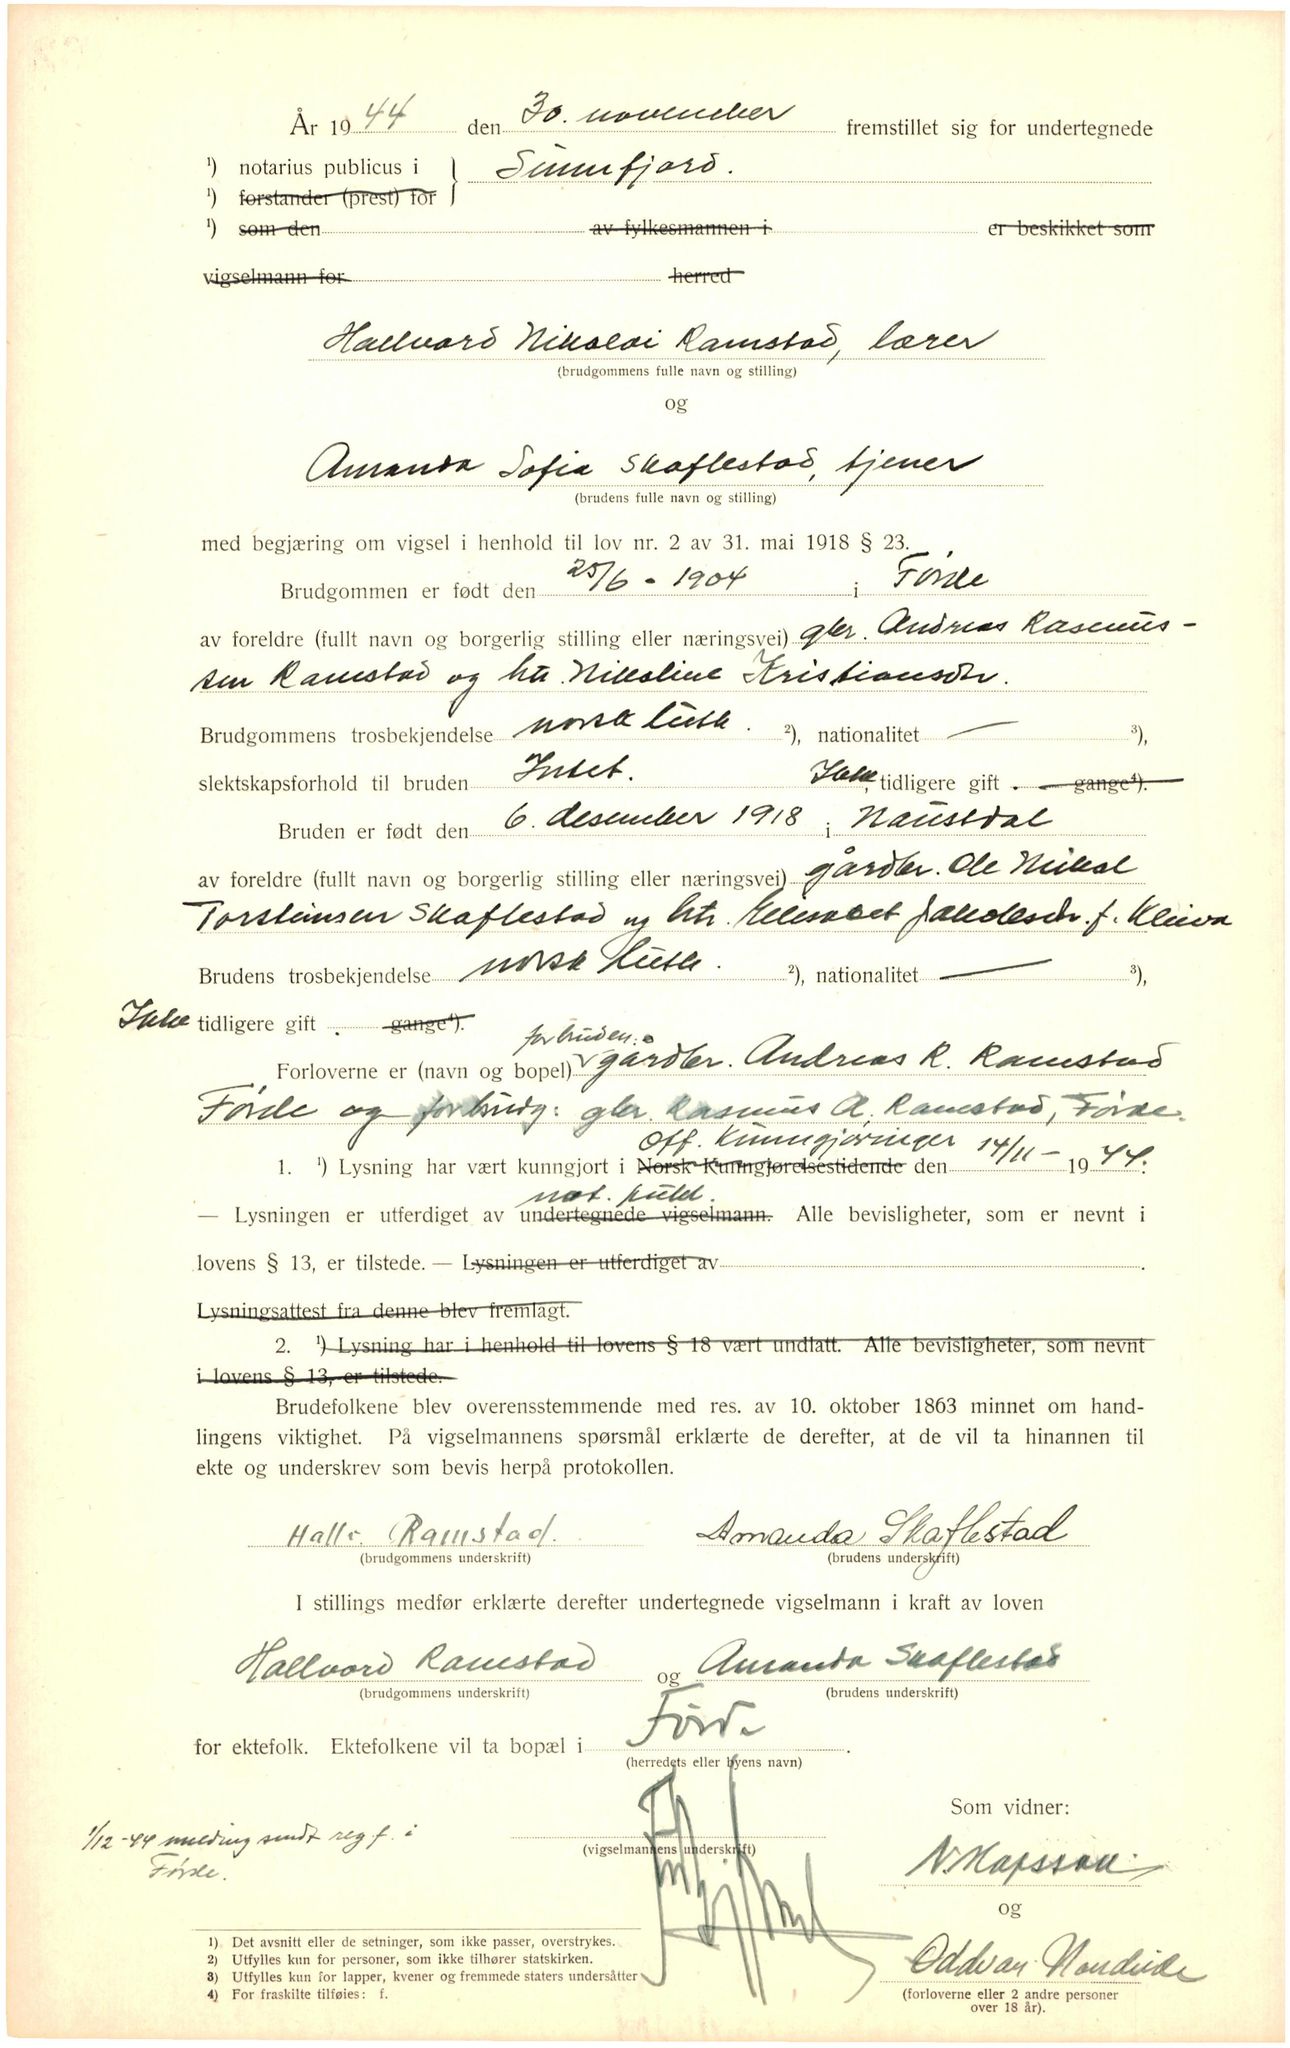 År 1944 den 30. november fremstillet sig for undertegnede
1) notarius publicus i } Sunnfjord.
1) forstander (prest) for
1) som den av fylkesmannen i er beskikket som
vigselmann for herred
Hallvard Nikolai Ramstad, lærer
(brudgommens fulle navn og stilling)
og
Amanda Sofia Skaflestad, tjener
(brudens fulle navn og stilling)
med begjæring om vigsel i henhold til lov nr. 2 av 31. mai 1918 § 23.
Brudgommen er født den 25/6 - 1904 i Førde
av foreldre (fullt navn og borgerlig stilling eller næringsvei) gbr. Andreas Rasmus-
sen Ramstad og htr. Nikoline Kristiansdtr.
Brudgommens trosbekjendelse norsk luth. 2), nationalitet — 3),
slektskapsforhold til bruden Intet. Ikke tidligere gift . gange4).
Bruden er født den 6. desember 1918 i Naustdal
av foreldre (fullt navn og borgerlig stilling eller næringsvei) gårdbr. Ole Mikal
Torsteinsen Skaflestad og htr. Ellisabet Jakobsdtr. f. Kleiva
Brudens trosbekjendelse norsk luth. 2), nationalitet — 3),
Ikke tidligere gift . gange4).
for bruden:
Forloverne er (navn og bopel) gårdbr. Andreas R. Ramstad
Førde og for brudg: gbr. Rasmus A. Ramstad, Førde.
Off. Kunngjøringer
1. 1) Lysning har vært kunngjort i Norsk Kunngjørelsestidende den 14/11 - 1944.
not. publ.
— Lysningen er utferdiget av undertegnede vigselmann. Alle bevisligheter, som er nevnt i
lovens § 13, er tilstede. — Lysningen er utferdiget av .
Lysningsattest fra denne blev fremlagt.
2. 1) Lysning har i henhold til lovens § 18 vært undlatt. Alle bevisligheter, som nevnt
i lovens § 13, er tilstede.
Brudefolkene blev overensstemmende med res. av 10. oktober 1863 minnet om hand-
lingens viktighet. På vigselmannens spørsmål erklærte de derefter, at de vil ta hinannen til
ekte og underskrev som bevis herpå protokollen.
Hallv. Ramstad. Amanda Skaflestad
(brudgommens underskrift) (brudens underskrift)
I stillings medfør erklærte derefter undertegnede vigselmann i kraft av loven
Hallvard Ramstad og Amanda Skaflestad
(brudgommens underskrift) (brudens underskrift)
for ektefolk. Ektefolkene vil ta bopæl i Førde .
(herredets eller byens navn)
Som vidner:
1/12 -44 melding sendt reg f. i
Førde.
(vigselmannens underskrift)
og
Oddvar
(forloverne eller 2 andre personer
over 18 år).
1) Det avsnitt eller de setninger, som ikke passer, overstrykes.
2) Utfylles kun for personer, som ikke tilhører statskirken.
3) Utfylles kun for lapper, kvener og fremmede staters undersåtter
4) For fraskilte tilføies: f.